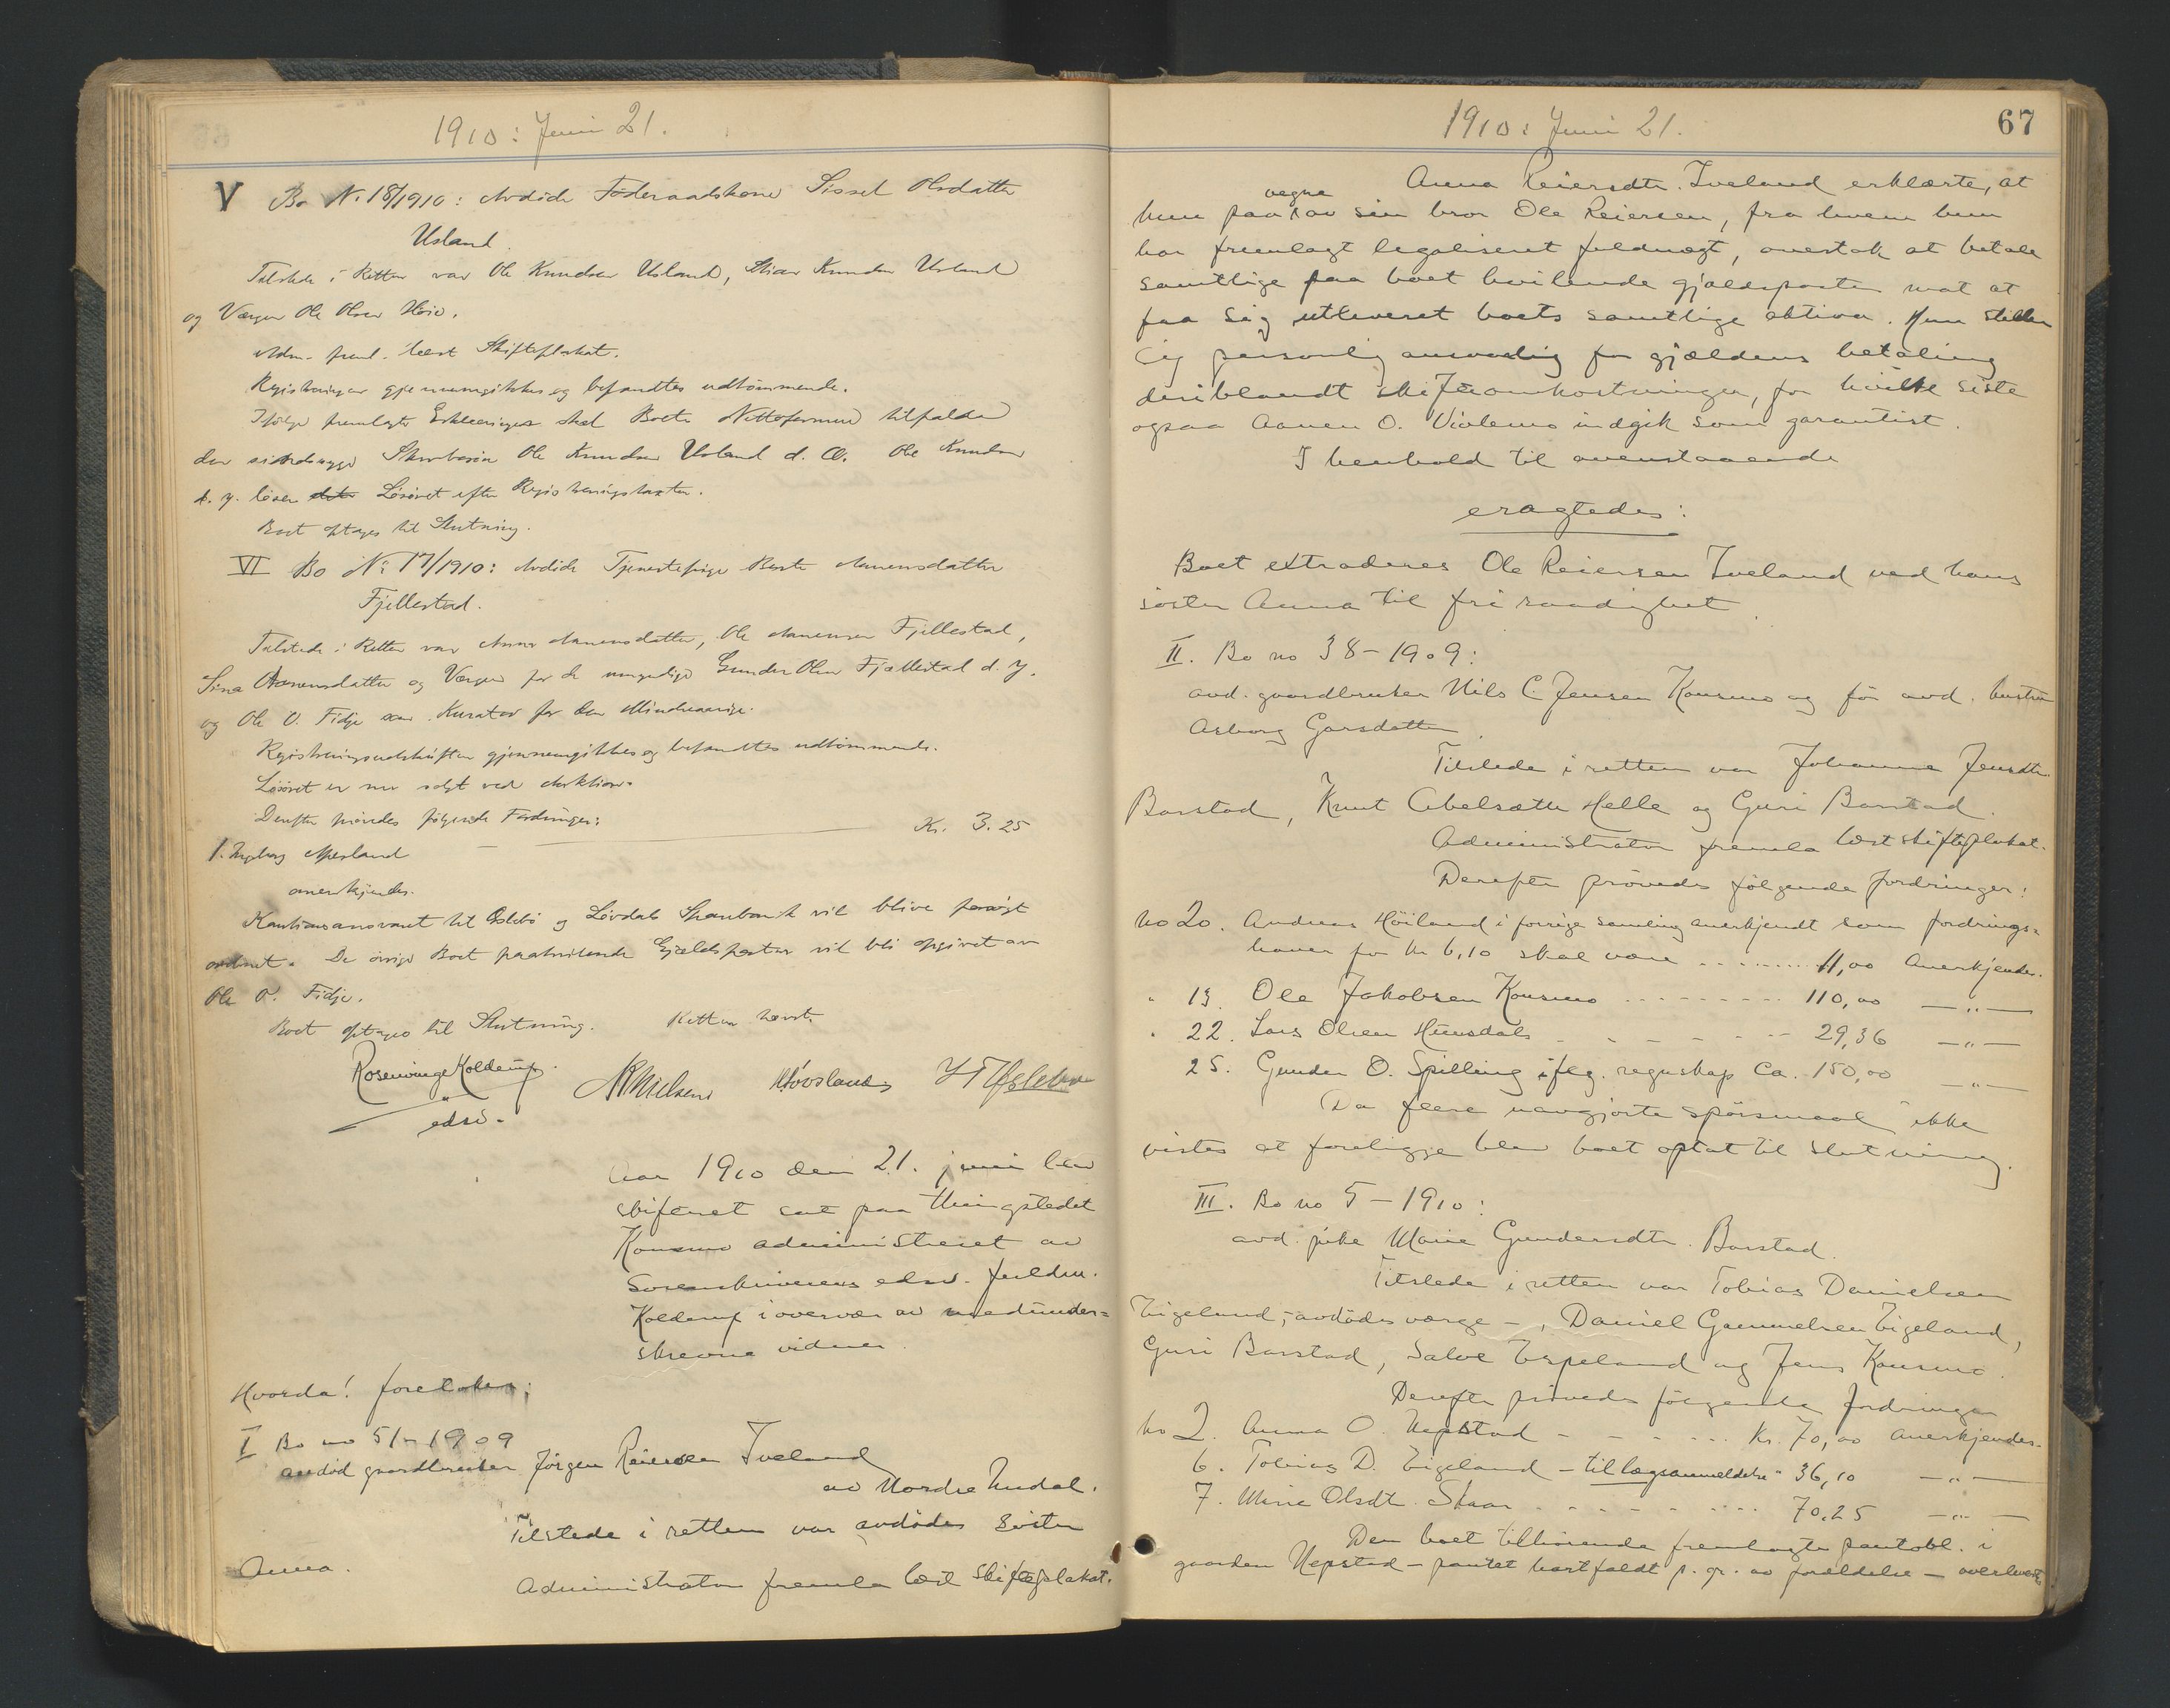 1910: Juni 21.
V Bo N. 18/1910: Avdöde Föderaadskone Sissel Olsdatter
Usland.
Tilstede i Retten var Ole Knudsen Usland, Knudsen Usland
og Værgen Ole Olsen
Adm. freml. læst Skifteplakat.
Registreringen gjennemgikkes og befandtes udtömmende.
Ifölge fremlagte Erklæringer skal Boets Nettoformue tilfalde
den Ole Knudsen Usland d. Æ. Ole Knudsen
d. y. löser Lösöret efter Registreringstaxten.
Boet optages til Slutning.
VI Bo N: 17/1910: Avdöde Tjenestepige Berte Aanensdatter
Fjellestad.
Tilstede i Retten var Anne Aanensdatter, Ole Aanensen Fjellestad,
Sina Aanensdatter og Værgen for de umyndige Gunder Olsen Fjellestad d. y.
og Ole O. Fidje som Kurator for den Mindreaarige.
Registreringsudskriften gjennemgikkes og befandtes udtömmende.
Lösöret er nu solgt ved Auktion.
Derefter prövedes fölgende Fordringer:
1. Ingeborg Apesland Kr. 3.25
anerkjendes.
Kautionsansvaret til Öslebö og Lövdals Sparebank vil blive
ordnet. De övrige Boet paahvilende Gjældsposter vil bli opgivet av
Ole O. Fidje.
Boet optages til Slutning. Retten hævet.
Rosenvinge Kolderup
edsv.
NKNielsen Hövsland
Aar 1910 den 21. juni blev
skifteret sat paa thingstedet
Konsmo administreret av
Sorenskriverens edsv. fuldm.
Kolderup i overvær av medunder=
skrevne vidner.
Hvorda! foretokes:
I Bo no 51-1909
avdöd gaardbruker Jörgen Reiersen Iveland
av Nordre Undal.
Tilstede i retten var avdödes söster
Anna.
Administrator fremla læst skifteplakat.
1910: Juni 21.
67
Anna Reiersdtr. Iveland erklærte, at
hun paa vegne av sin bror Ole Reiersen, fra hvem hun
har fremlagt legaliseret fuldmagt, overtok at betale
samtlige paa boet hvilende gjældsposter mot at
faa sig utleveret boets samtlige aktiva. Hun stiller
sig personlig ansvarlig for gjældens betaling
deriblandt skifteomkostninger, for hvilke siste
ogsaa Aanen O. Viblemo indgik som garantist.
I henhold til ovenstaaende
eragtedes:
Boet extraderes Ole Reiersen Iveland ved hans
söster Anna til fri raadighet.
II. Bo no 38-1909:
avd. gaardbruker Nils C. Jensen Konsmo og för avd. hustru
Asborg Garsdatter.
Tilstede i retten var Johanne Jensdtr.
Barstad, Knut Abelsætr Helle og Guri Barstad.
Administrator fremla læst skifteplakat.
Derefter prövedes fölgende fordringer:
no 20. Andreas Höiland i forrige samling anerkjendt som fordrings=
haver for kr 6,10 skal være .......... 11,00 Anerkjendes.
" 13. Ole Jakobsen Konsmo ......... 110,00 — " —
" 22. Lars Olsen Hunsdal - - - - - - - 29,36 — " —
25. Gunder O. Spilling iflg. regnskap Ca. 150,00 — " —
Da flere uavgjorte spörsmaal ikke
vistes at foreligge blev boet optat til slutning.
III. Bo no 5-1910:
avd. pike Marie Gundersdtr. Barstad.
Tilstede i retten var Tobias Danielsen
Eigeland, - avdödes værge -, Daniel Gammelsen Eigeland,
Guri Barstad, Salve Espeland og Jens Konsmo.
Derefter prövedes fölgende fordringer
no 2. Anna O. Nepstad - - - - ... Kr. 70,00 Anerkjendes.
6. Tobias D. Eigeland - tillægsanmeldelse " 36,10 — " —
7. Marie Olsdtr. Skaar . . . . . . . . 70,25 — " —
Den boet tilhörende fremlagte pantobl. i
gaarden Nepstad - pantet bortfaldt p. gr. av forældelse -